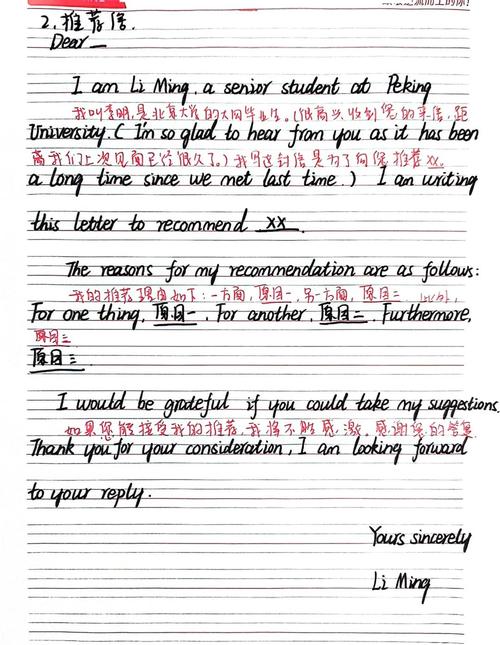 2.推荐信
Dear __
I am Li Ming, a senior student at Peking
我叫李明,是北京大学的大四毕业生。(很高兴收到您的来信,距
University. ( I'm so glad to hear from you as it has been
离我们上次见面已经很久了。)我写这封信是为了向您推荐xx.
a long time since we met last time. ) I am writing
this letter to recommend xx.
The reasons for my recommendation are as follows:
我的推荐理由如下:一方面,原因一,另一方面,原因二 此外,
For one thing, 原因一. For another, 原因二. Furthermore,
原因三
原因三
I would be grateful if you could take my suggestions.
如果您能接受我的推荐,我将不胜感激.感谢您的答复
Thank you for your consideration, I am looking forward
to your reply.
Yours sincerely
Li Ming